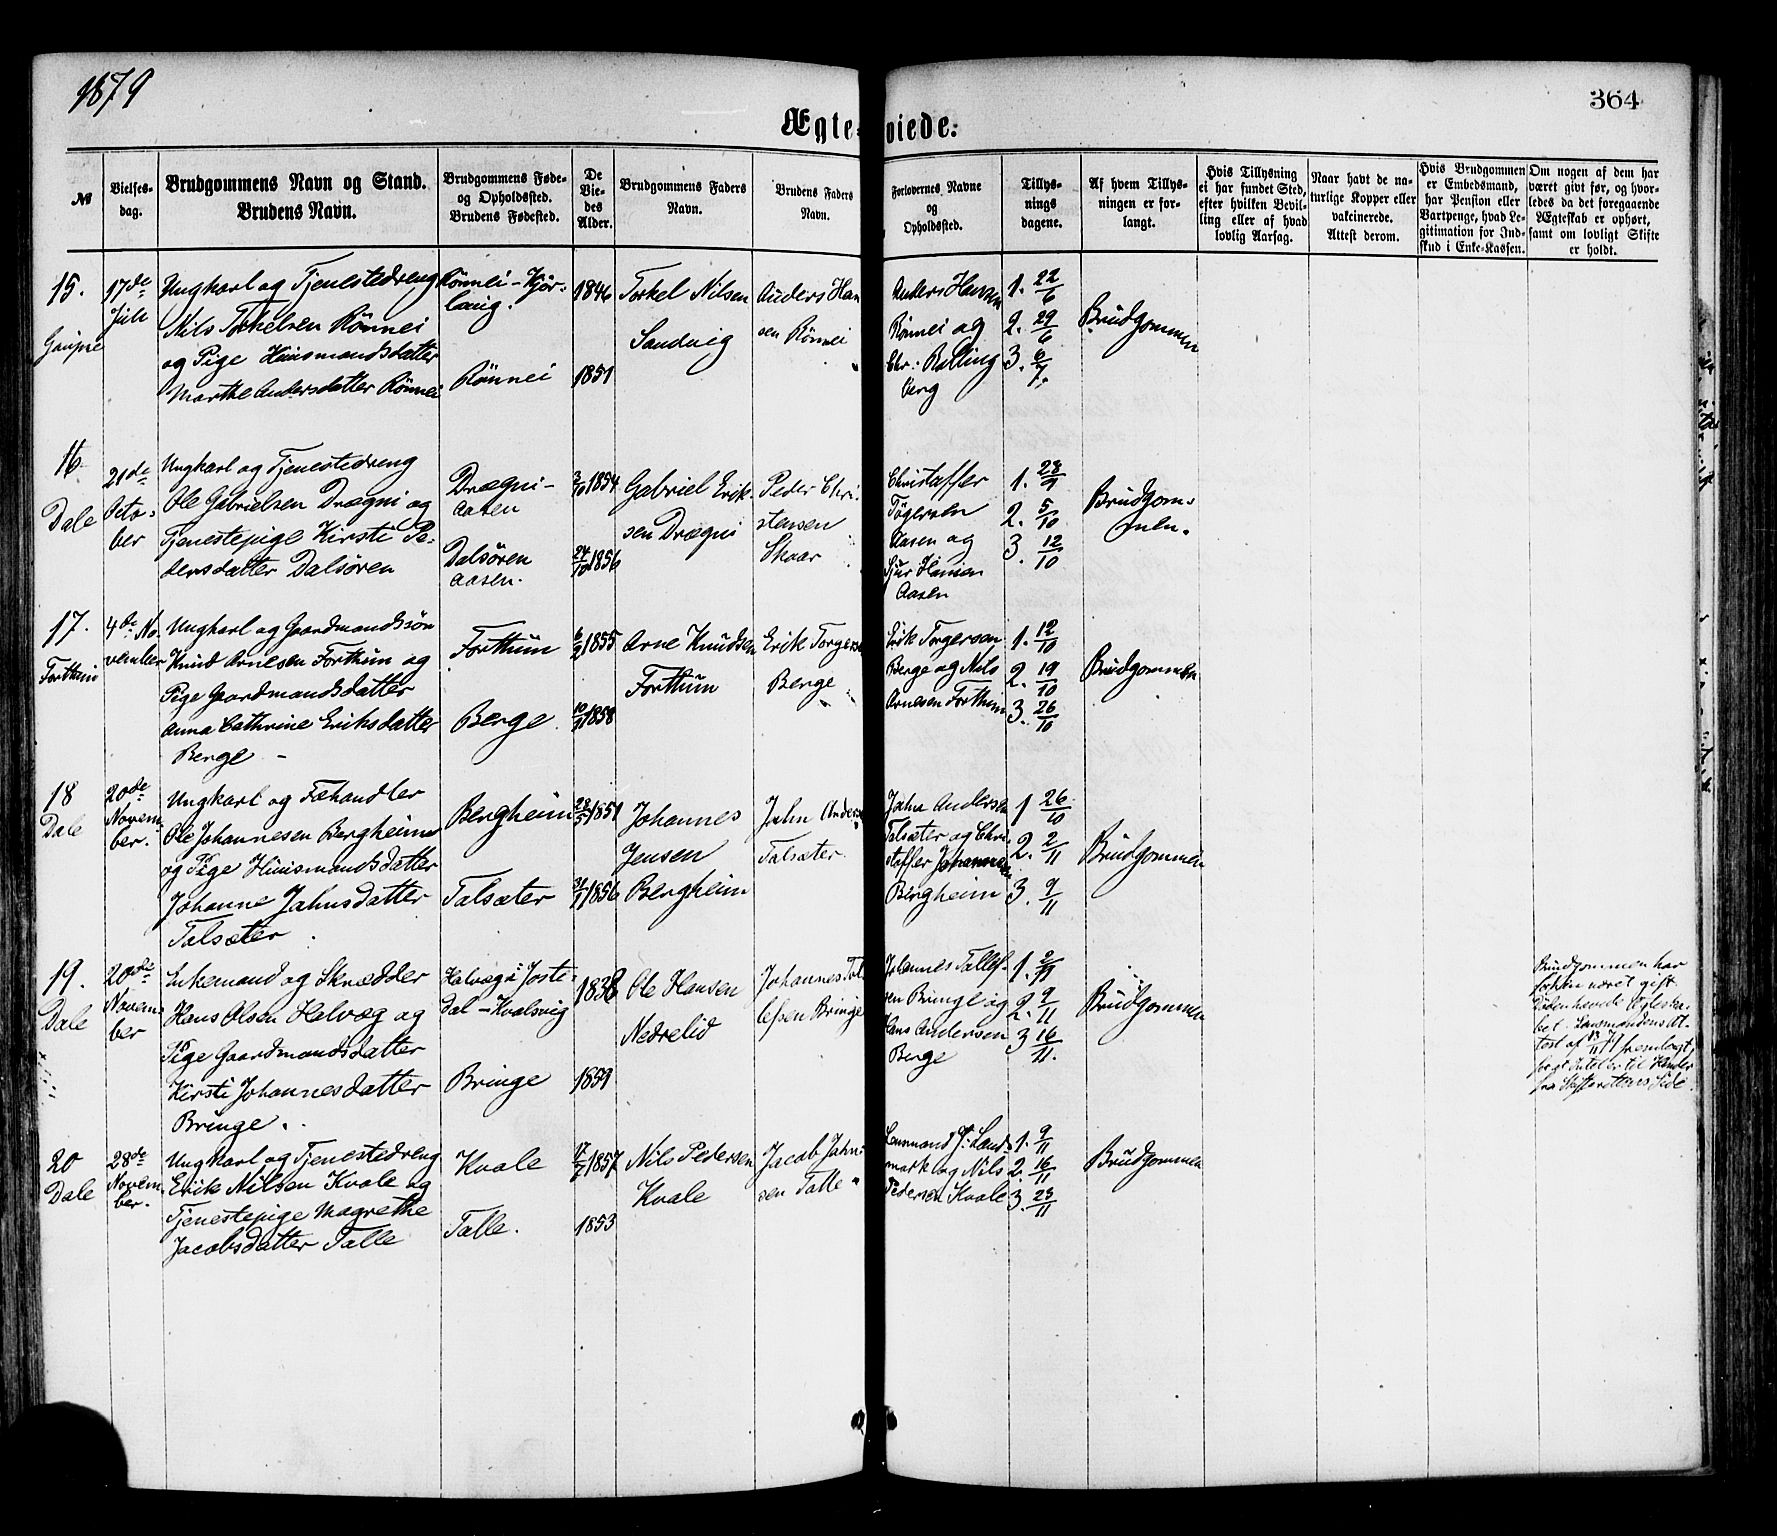 1879
364
Ægteviede.
№
Vielsesdag.
Brudgommens Navn og Stand.
Brudens Navn.
Brudgommens Føde- og Opholdssted.
Brudens Fødested.
De Viedes Alder.
Brudgommens Faders Navn.
Brudens Faders Navn.
Forlovernes Navne og Opholdssted.
Tillysningsdagene.
Af hvem Tillysningen er forlangt.
Hvis Tillysning ei har fundet Sted, efter hvilken Bevilling eller af hvad lovlig Aarsag.
Naar havt de naturlige Kopper eller vakcinerede. Attest derom.
Hvis Brudgommen er Embedsmand, har Pension eller Vartpenge, hvad Legitimation for Indskud i Enke-Kassen.
Om nogen af dem har været givt før, og hvorledes da det foregaaende Ægteskab er ophørt, samt om lovligt Skifte er holdt.
15.
Gaupne
17de Juli
Ungkarl og Tjenestedreng
Nils Torkelsen Rönnei
og Pige Huusmandsdatter
Marthe Andersdatter Rönnei
Rönnei - Kjör-
laug.
Rönnei
1846
1851
Torkel Nilsen
Sandvig
Anders Han
sen Rönnei
Anders Hansen
Rönnei og
Chr: Bolling
berg
1. 22/6
2. 29/6
3. 6/7.
Brudgommen
16
Dale
21de
Octo-
ber
Ungkarl og Tjenestedreng
Ole Gabrielsen Drægni og
Tjenestepige Kirsti Pe-
dersdatter Dalsören
Drægni-
aasen
Dalsören
aasen.
3/10 1854
24/10 1856
Gabriel Erik-
sen Drægni
Peder Chri-
stensen
Skaar
Christaffer
Tögersen
Aasen og
Sjur Hansen
Aasen
1. 28/9
2. 5/10
3. 12/10
Brudgom-
men.
17.
Forthun
4de No-
vember
Ungkarl og Gaardmandssön
Knud Arnesen Forthun og
Pige Gaardmandsdatter
Anna Cathrine Eriksdatter
Berge -
Forthun
Berge
6/2 1855
10/11 1858
Arne Knudsen
Forthun
Erik Torgersen
Berge
Erik Torgersen
Berge og Nils
Arnesen Forthun
1. 12/10
2. 19/10
3. 26/10
Brudgommen
18
Dale
20de
Novem-
ber.
Ungkarl og Fæhandler
Ole Johannesen Bergheim
og Pige Huusmandsdatter
Johanne Jahnsdatter
Talsæter
Bergheim
Talsæter
1851
1856
Johannes
Jensen
Bergheim
Jahn Anders
Talsæter
Jahn Andersen
Talsæter og Chri
staffer Johannesen
Bergheim
1 26/10
2. 2/11
3. 9/11
Brudgommen
19.
Dale
20de
Novem-
ber
Enkemand og Skrædder
Hans Olsen Helvæg og
Pige Gaardmandsdatter
Kirsti Johannesdatter
Bringe.
Helvæg i Joste-
dal - Kvalsvig
Bringe
1838
1859
Ole Hansen
Nedrelid
Johannes Tol
lefsen Bringe
Johannes Tollef-
sen Bringe og
Hans Andersen
Berge
1. 2/11
2. 9/11
3 16/11.
Brudgommen
Brudgommen har
forhen været gift.
Döden hævede Ægteska-
bet. Lensmandens At-
test af 13/11 79 fremlagt,
at Intet er til Hinder
fra Skifterettens Side.
20
Dale
28de
Novem-
ber.
Ungkarl og Tjenestedreng
Erik Nilsen Kvale og
Tjenestepige Magrethe
Jacobsdatter Talle
Kvale
Talle.
17/7 1857
1853
Nils Pedersen
Kvale
Jacob Jahn-
sen Talle
Lensmand J. Lands-
mark og Nils
Pedersen Kvale
1. 9/11
2. 16/11
3. 23/11
Brudgommen